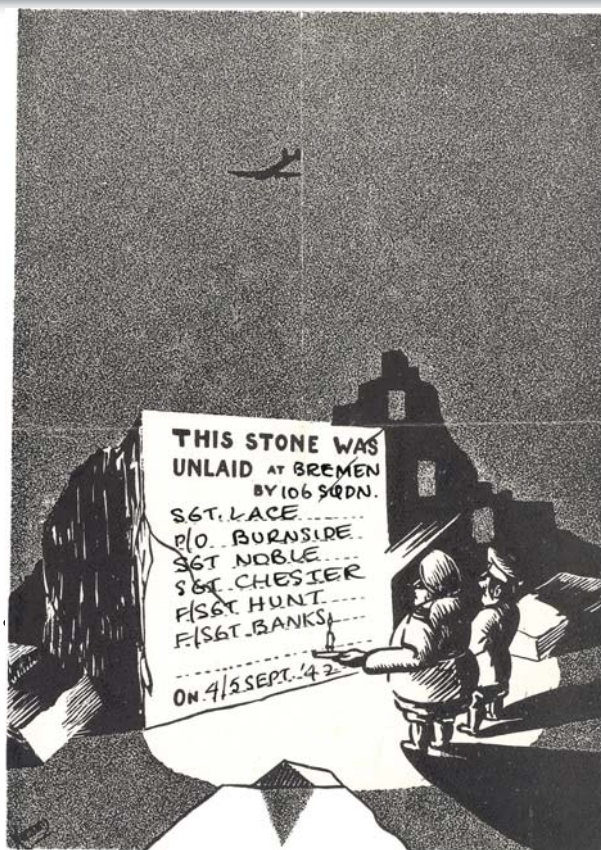 THIS STONE WAS
UNLAID AT BREMEN
BY 106 SQDN.
SGT. LACE
P/O BURNSIDE
SGT NOBLE
SGT CHESTER
F/SGT HUNT
F/SGT BANKS
ON 4/5 SEPT. '42